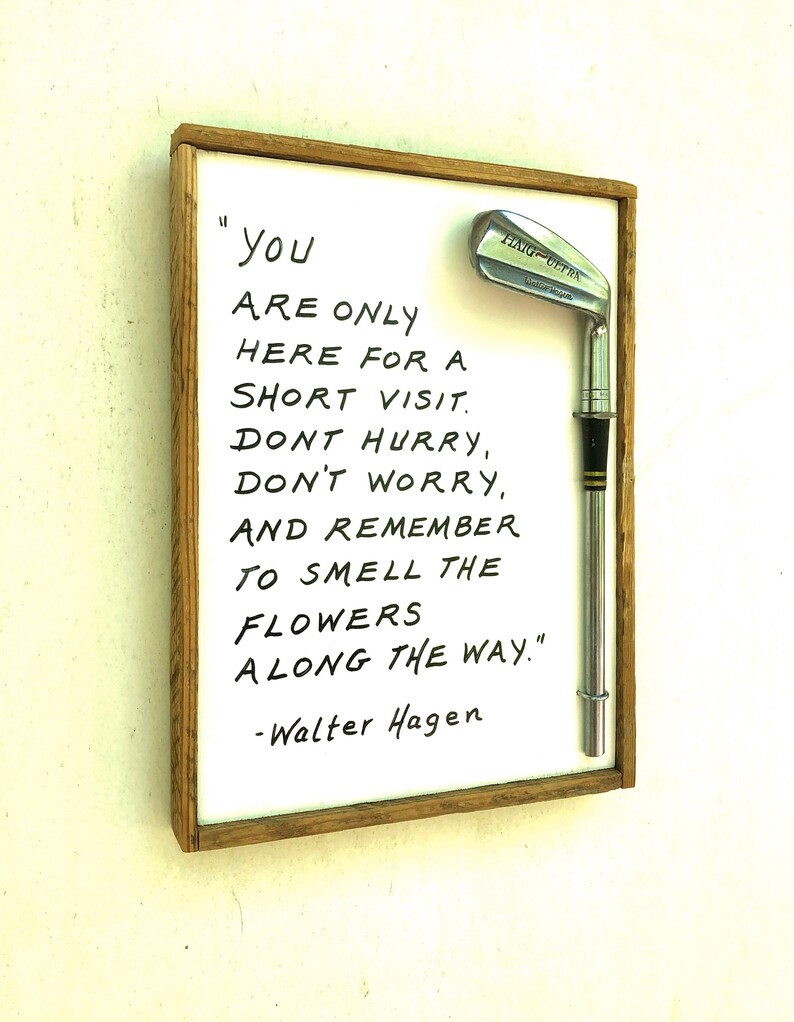 "YOU
ARE ONLY
HERE FOR A
SHORT VISIT.
DONT HURRY,
DON'T WORRY,
AND REMEMBER
TO SMELL THE
FLOWERS
ALONG THE WAY."
-Walter Hagen
HAIG ULTRA
Walter Hagen